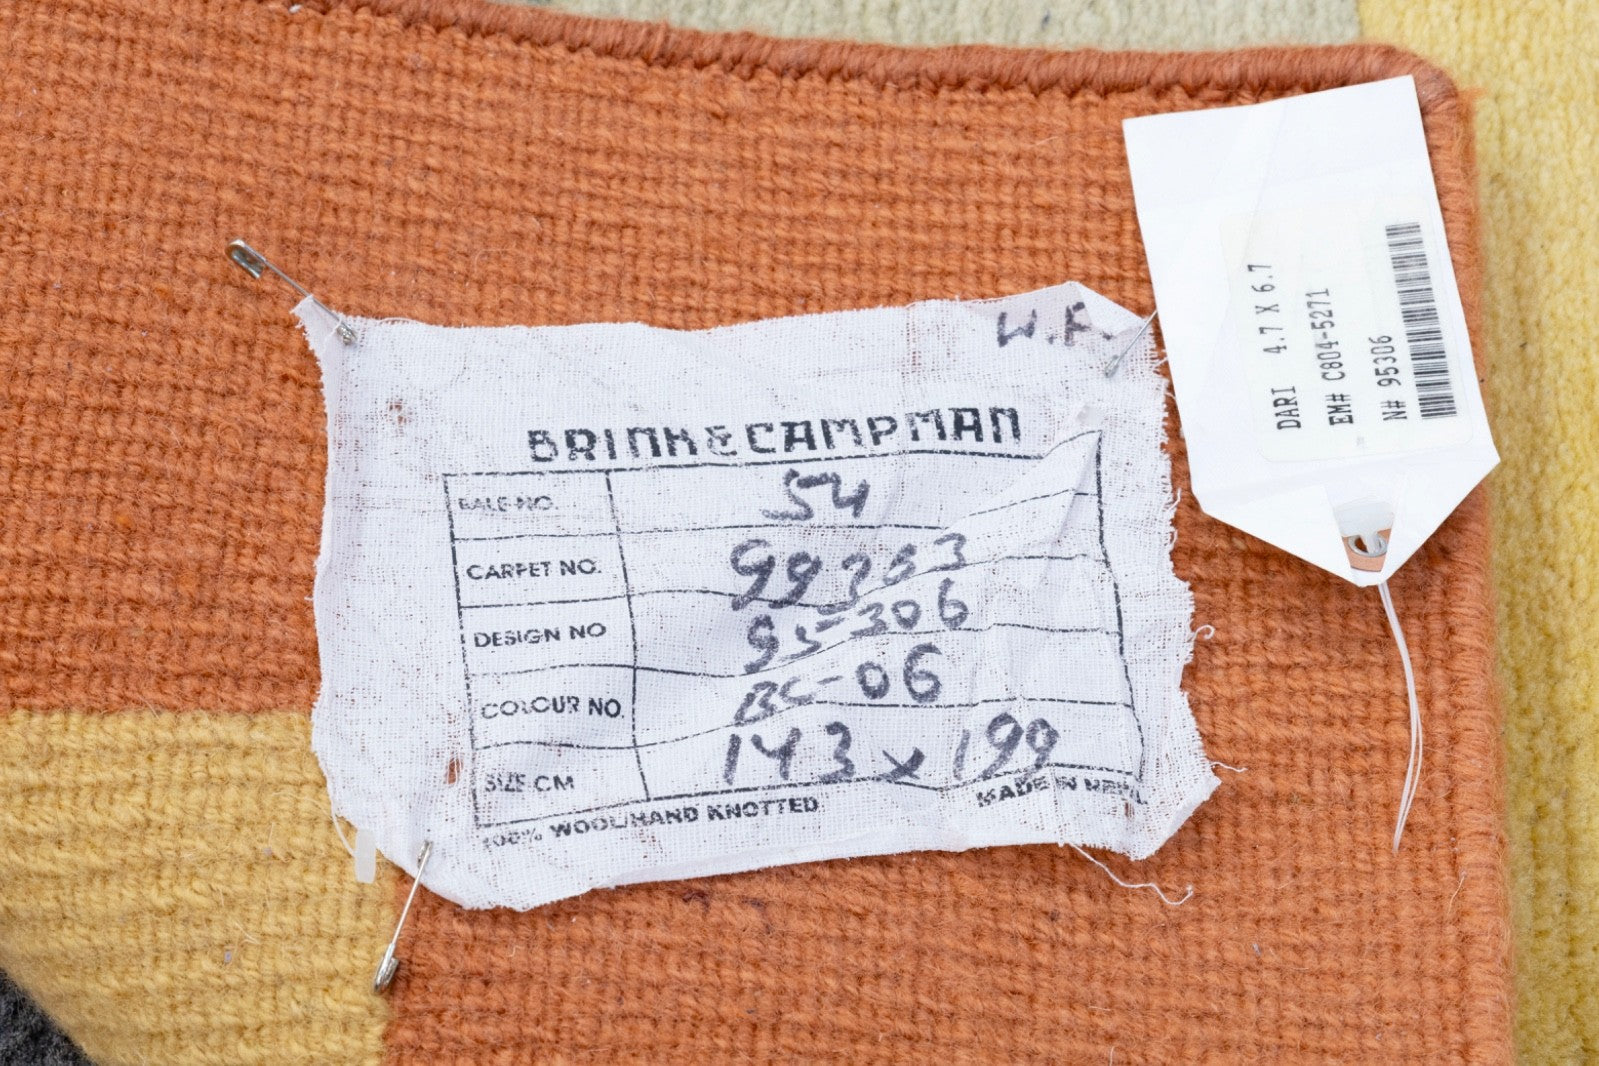 W.F.
BRINK & CAMPMAN
BALE NO. 54
CARPET NO. 99363
DESIGN NO 95-306
COLOUR NO. BC-06
SIZE CM 143 x 199
100% WOOL/HAND KNOTTED MADE IN NEPAL
DARI 4.7 X 6.7
EM# C804-5271
N# 95306